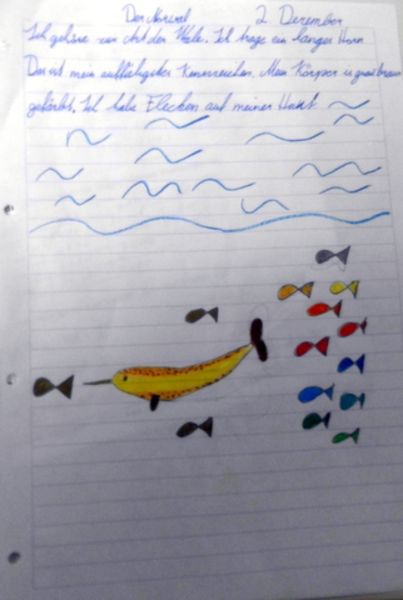 Der Narwal 2. Dezember
Ich gehöre zur Art der Wale. Ich trage ein langes Horn
Das ist mein auffälligster Kennzeichen. Mein Körper is graubraun
gefärbt. Ich habe Flecken auf meiner Haut